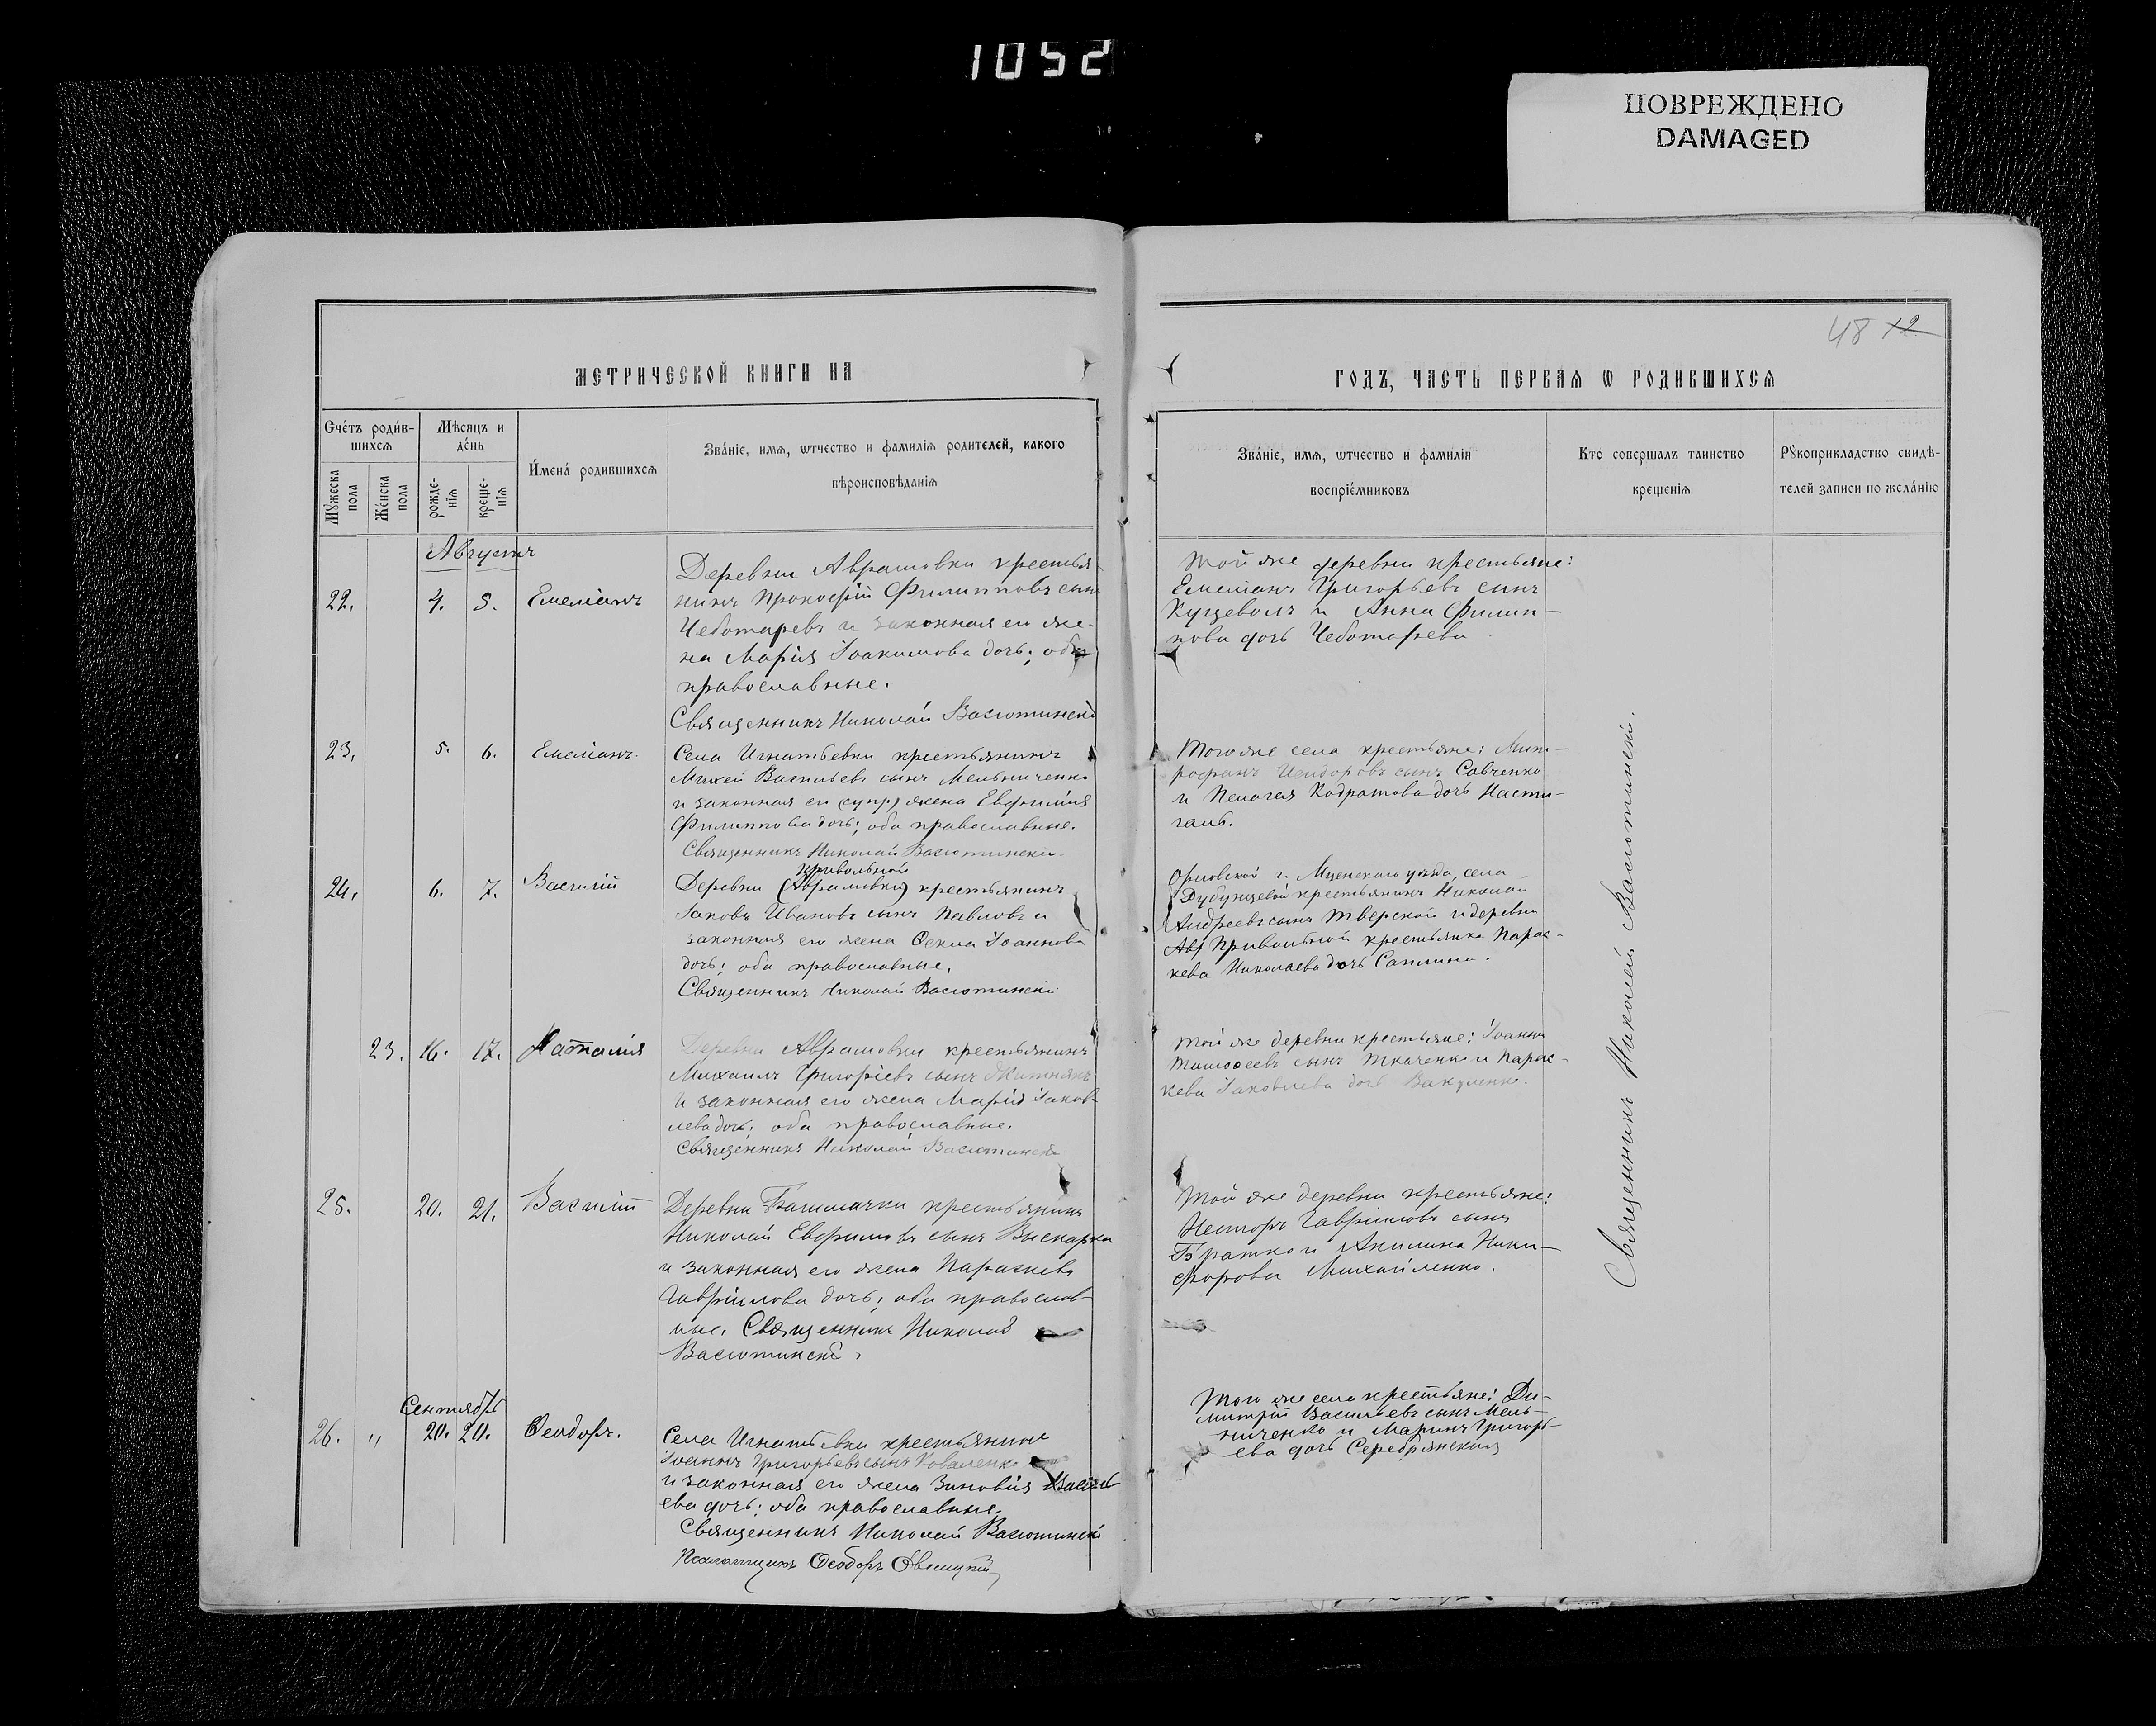 1052
ПОВРЕЖДЕНО
DAMAGED
48 12
МЕТРИЧЕСКОЙ КНИГИ НА
ГОДЪ, ЧАСТЬ ПЕРВАѦ Ѡ РОДИВШИХСѦ
Счéтъ родúв-
шихсѧ
Мѣсяцъ и
дéнь
Мꙋжеска
пола
Жéнска
пола
рожде-
ніѧ
креще-
ніѧ
И́мена́ родившихсѧ
Зва́ніе, имѧ, ѡтчество и фамилія родителей, какого
вѣроисповѣданіѧ
Зва́ніе, имѧ, ѡтчество и фамилія
воспріе́мниковъ
Кто совершалъ таинство
крещеніѧ
Рꙋкоприкладство свидѣ-
телей записи по жела́нію
Августъ
22. 4. 5. Емеліанъ
Деревни Аврамовки крестья-
нинъ Прокофій Филипповъ сынъ
Чеботаревъ и законная его же-
на Марія Іоакимова дочь; оба
православные.
Священникъ Николай Васютинскій
Той же деревни крестьяне:
Емеліанъ Григорьевъ сынъ
Куцеволъ и Анна Филип-
пова дочь Чеботарева
23. 5. 6. Емеліанъ.
Села Игнатьевки крестьянинъ
Михей Васильевъ сынъ Мельниченко
и законная его (супр) жена Евфимія
Филиппова дочь; оба православные.
Священникъ Николай Васютинскій
Того же села крестьяне: Мит-
рофанъ Исидоровъ сынъ Савченко
и Пелагея Кодратова дочь Насти-
галь.
24. 6. 7. Василій
Привольной
Деревни (Аврамовки) крестьянинъ
Іаковъ Ивановъ сынъ Павловъ и
законная его жена Ѳекла Іоаннова
дочь; оба православные.
Священникъ Николай Васютинскій
Орловской г. Мценскаго уѣзда, села
крестьянинъ Николай
Андреевъ сынъ Тверской и деревни
Авр Привольной крестьянка Парас-
кева Николаева дочь
23. 16. 17. Наталія
Деревни Аврамовки крестьянинъ
Михаилъ Григоріевъ сынъ Житнякъ
и законная его жена Марія Іаков-
лева дочь; оба православные.
Священникъ Николай Васютинскій
Той же деревни крестьяне: Іоаннъ
Тимоѳеевъ сынъ Ткаченко и Парас-
кева Іаковлева дочь Вакуленко.
25. 20. 21. Василій
Деревни Башмачки крестьянинъ
Николай Евфимовъ сынъ
и законная его жена Параскева
Гавріилова дочь; оба православ-
ные. Священникъ Николай
Васютинскій.
Той же деревни крестьяне:
Несторъ Гавріиловъ сынъ
Братко и Акилина Ники-
форова Михайленко.
Сентябрь
26. „ 20. 20. Ѳеодоръ.
Села Игнатьевки крестьянинъ
Іоаннъ Григорьевъ сынъ Коваленко
и законная его жена Зиновія Василь-
ева дочь; оба православные.
Священникъ Николай Васютинскій
Псаломщикъ Ѳеодоръ
Того же села крестьяне: Ди-
митрій Васильевъ сынъ Мель-
ниченко и Марина Григорь-
ева дочь Серебрянская
Священникъ Николай Васютинскій.